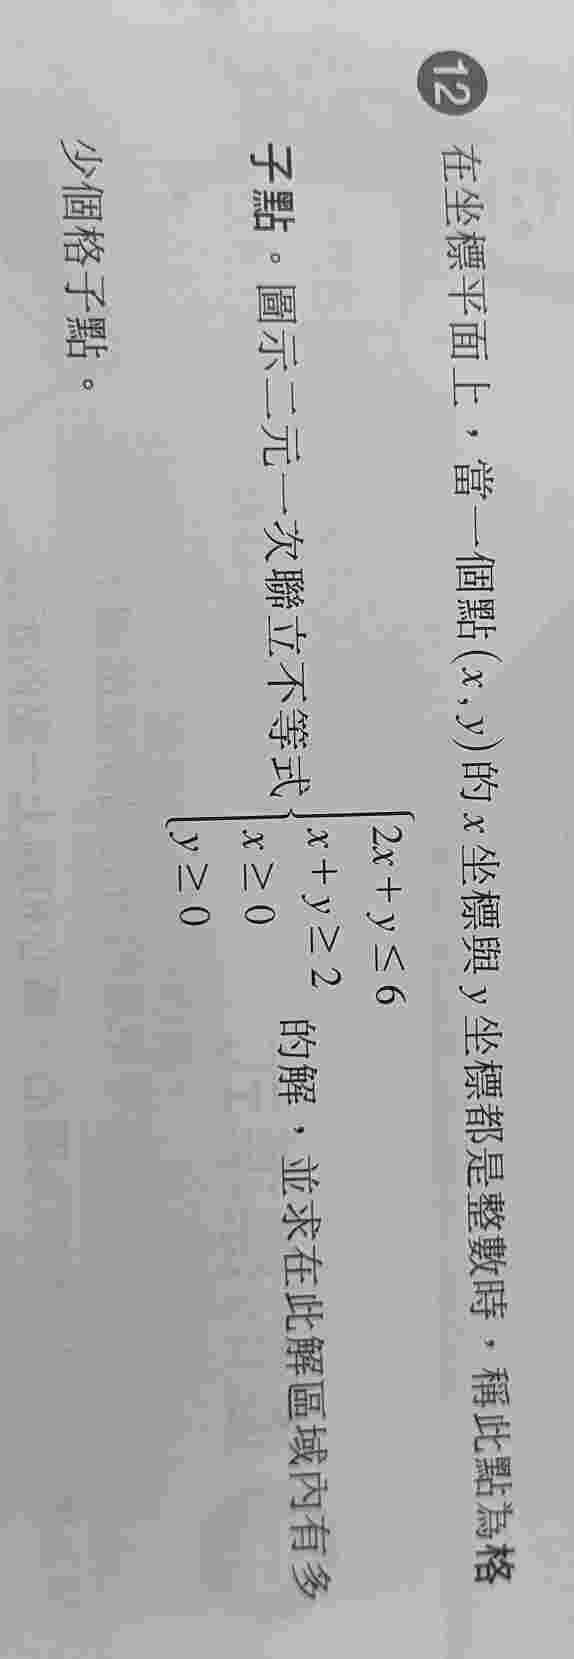 12 在坐標平面上，當一個點(x, y)的 x 坐標與 y 坐標都是整數時，稱此點為格
子點。圖示二元一次聯立不等式
2x+y≤6
x+y≥2
x≥0
y≥0
的解，並求在此解區域內有多
少個格子點。